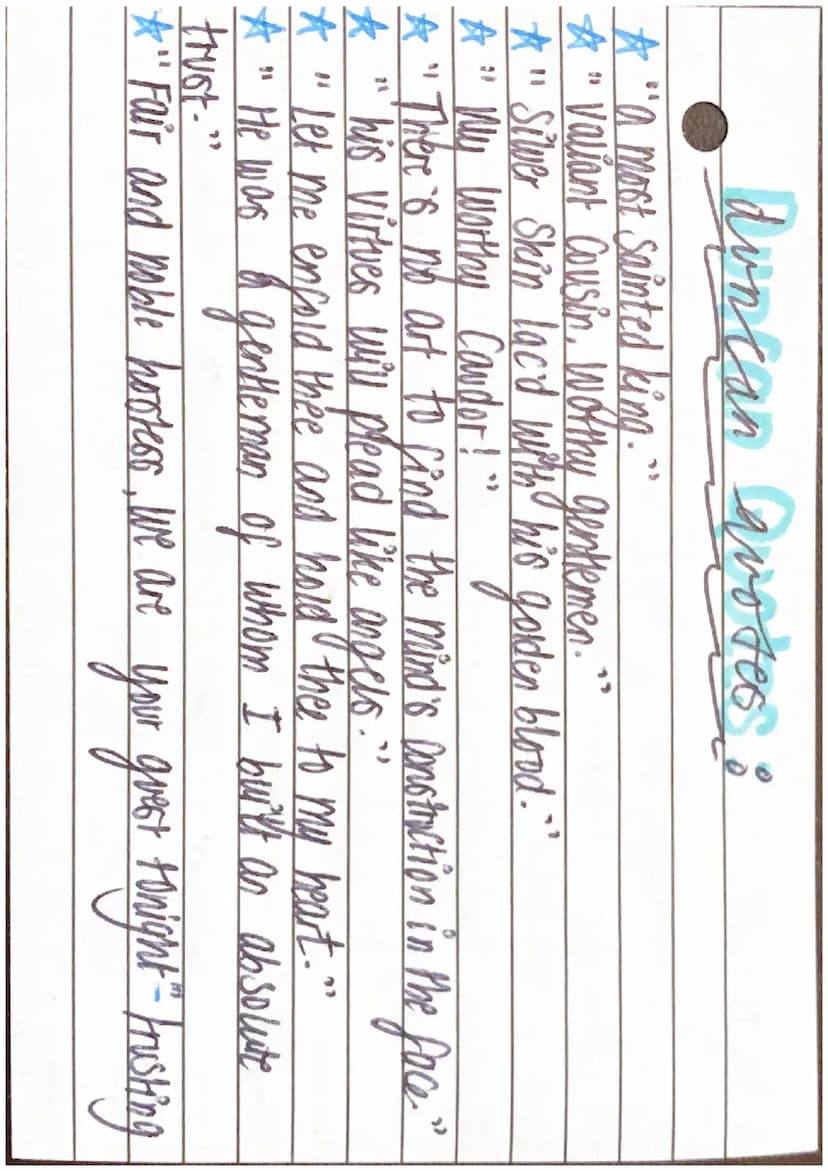 Duncan Quotes:
"a most sainted king."
"valiant cousin, worthy gentlemen."
"Silver Skin lac'd with his golden blood."
"My worthy Cawdor!"
"There's no art to find the mind's construction in the face."
"his virtues will plead like angels."
"Let me enfold thee and hold thee to my heart."
"He was a gentleman of whom I built an absolute
trust."
"Fair and noble hostess, we are your guest tonight" - trusting